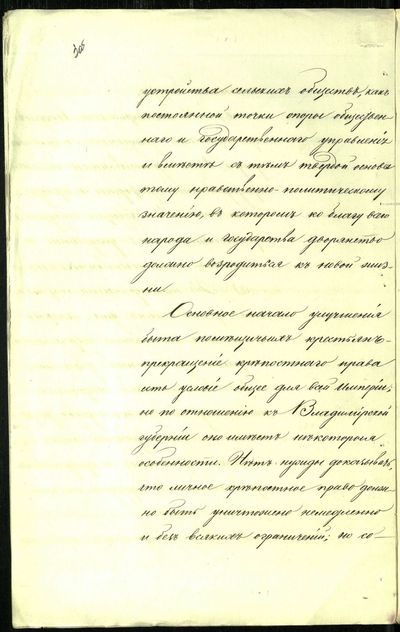 устройства сельскихъ обществъ, какъ
постоянной точки опоры обществен-
наго и государственнаго управленія
и вмѣстѣ съ тѣмъ твердой основы
тому нравственно-политическому
значенію, въ которомъ ко благу всего
народа и государства дворянство
должно возродиться къ новой жиз-
ни.
Основное начало улучшенія
быта помѣщичьихъ крестьянъ-
прекращеніе крѣпостнаго права
есть условіе общее для всей Имперіи;
но по отношенію къ Владимірской
губерніи оно имѣетъ нѣкоторыя
особенности. Нѣтъ нужды доказывать,
что личное крѣпостное право долж-
но быть уничтожено немедленно
и безъ всякихъ ограниченій; но со-